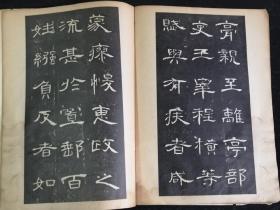 膏親至離亭部
吏王宰程橫等
賦與有疾者咸
蒙瘳悛惠政之
流甚於置郵百
姓繦負反者如